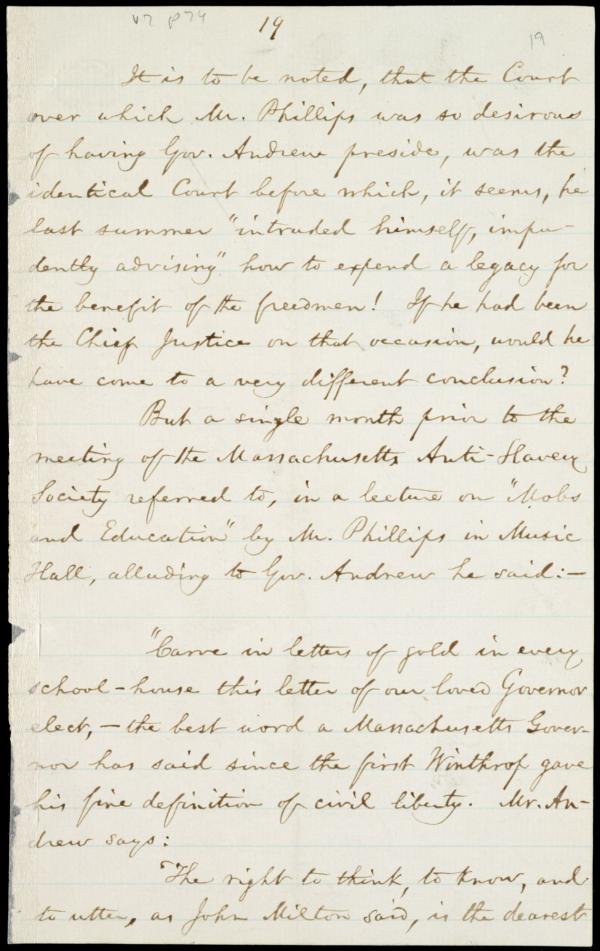 v2 p74
19
19
It is to be noted, that the Court
over which Mr. Phillips was so desirous
of having Gov. Andrew preside, was the
identical Court before which, it seems, he
last summer "intruded himself, impu-
dently advising" how to expend a legacy for
the benefit of the freedmen! If he had been
the Chief Justice on that occasion, would he
have come to a very different conclusion?
But a single month prior to the
meeting of the Massachusetts Anti-Slavery
Society referred to, in a lecture on "Mobs
and Education" by Mr. Phillips in Music
Hall, alluding to Gov. Andrew he said:—
"Carve in letters of gold in every
school-house this letter of our loved Governor
elect,—the best word a Massachusetts Gover-
nor has said since the first Winthrop gave
his fine definition of civil liberty. Mr. An-
drew says:
'The right to think, to know, and
to utter, as John Milton said, is the dearest